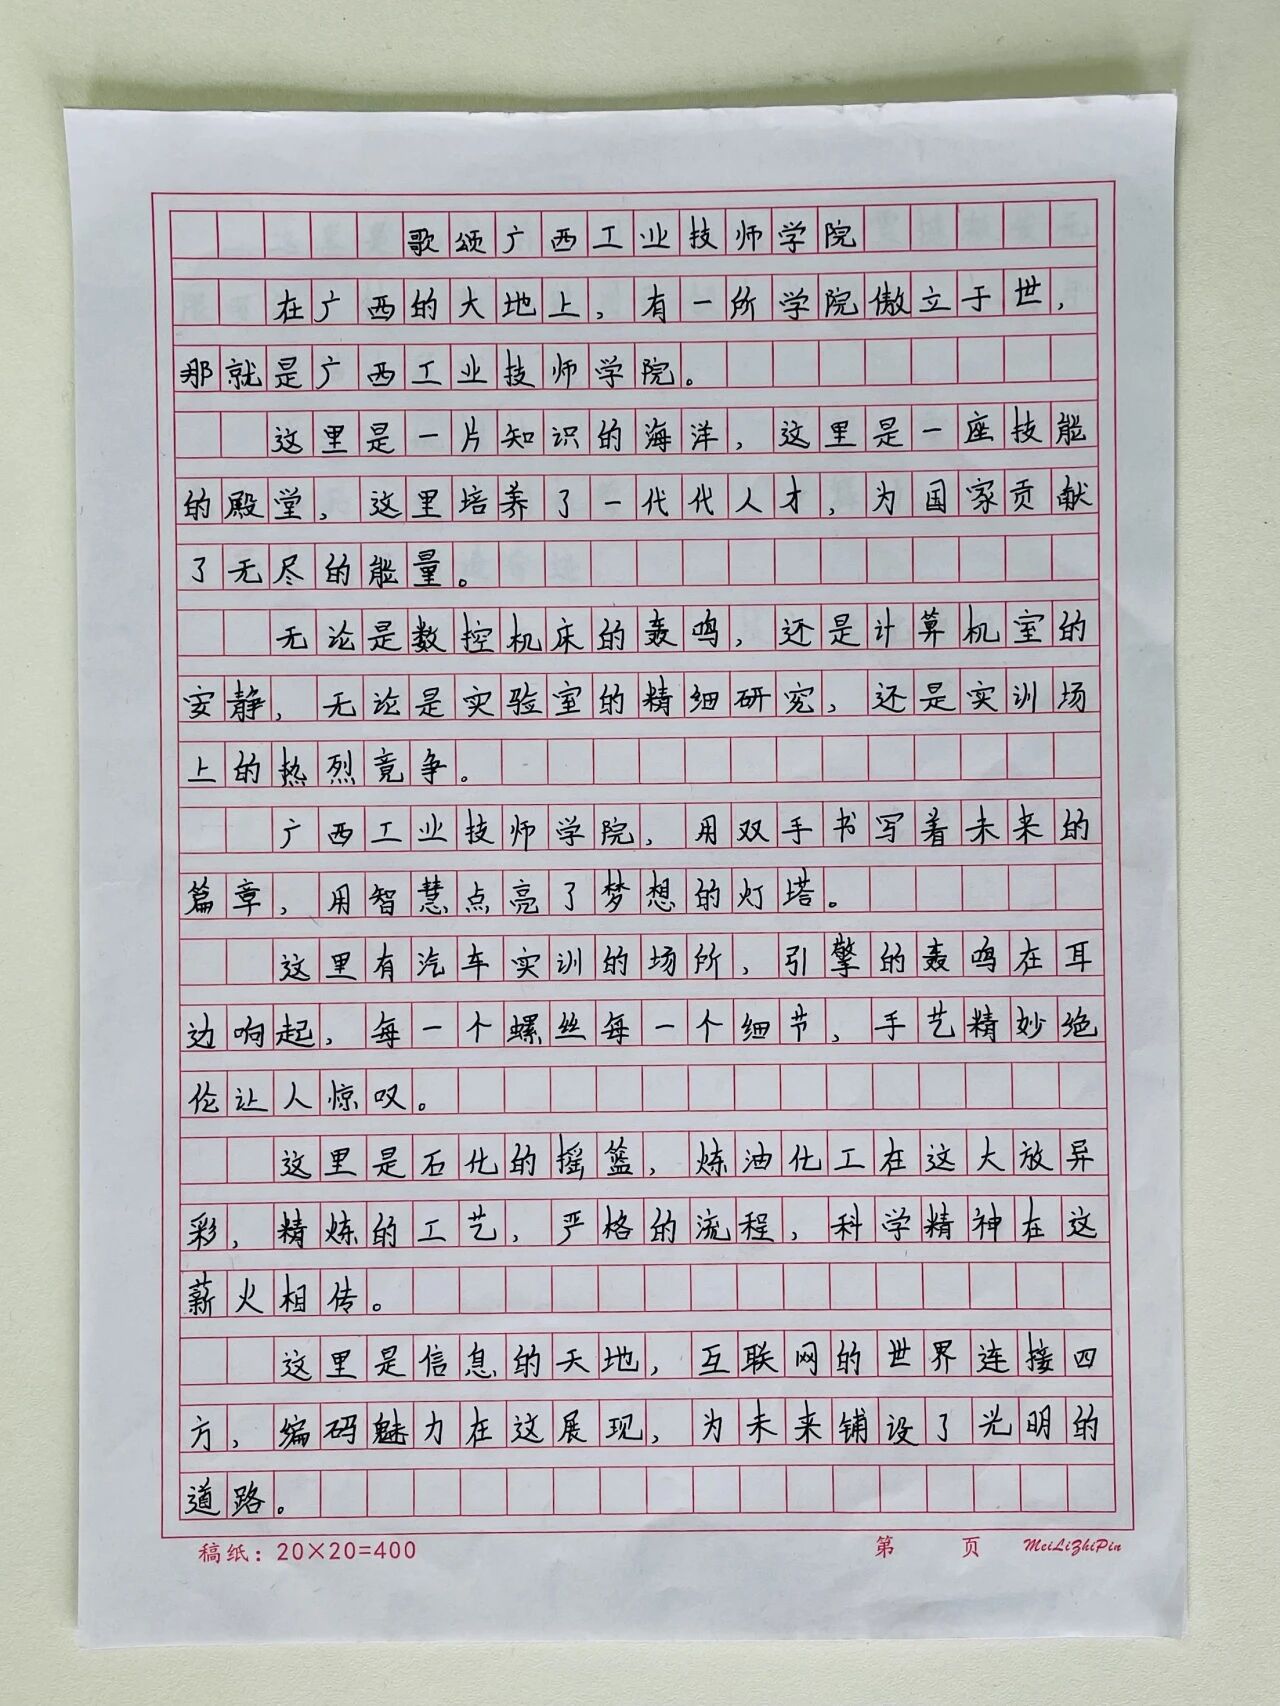 歌颂广西工业技师学院
在广西的大地上，有一所学院傲立于世，
那就是广西工业技师学院。
这里是一片知识的海洋，这里是一座技能
的殿堂，这里培养了一代代人才，为国家贡献
了无尽的能量。
无论是数控机床的轰鸣，还是计算机室的
安静，无论是实验室的精细研究，还是实训场
上的热烈竞争。
广西工业技师学院，用双手书写着未来的
篇章，用智慧点亮了梦想的灯塔。
这里有汽车实训的场所，引擎的轰鸣在耳
边响起，每一个螺丝每一个细节，手艺精妙绝
伦让人惊叹。
这里是石化的摇篮，炼油化工在这大放异
彩，精炼的工艺，严格的流程，科学精神在这
薪火相传。
这里是信息的天地，互联网的世界连接四
方，编码魅力在这展现，为未来铺设了光明的
道路。
稿纸：20×20=400 第 页 MeiLiZhiPin